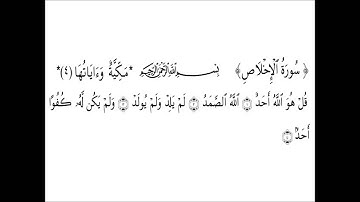 ﴿ سُورَةُ ٱلْإِخْلَاصِ ﴾ بِسْمِ ٱللَّهِ ٱلرَّحْمَٰنِ ٱلرَّحِيمِ *مَكِّيَّةٌ وَءَايَاتُهَا (٤)*
قُلْ هُوَ ٱللَّهُ أَحَدٌ ۝١ ٱللَّهُ ٱلصَّمَدُ ۝٢ لَمْ يَلِدْ وَلَمْ يُولَدْ ۝٣ وَلَمْ يَكُن لَّهُۥ كُفُوًا
أَحَدٌۢ ۝٤